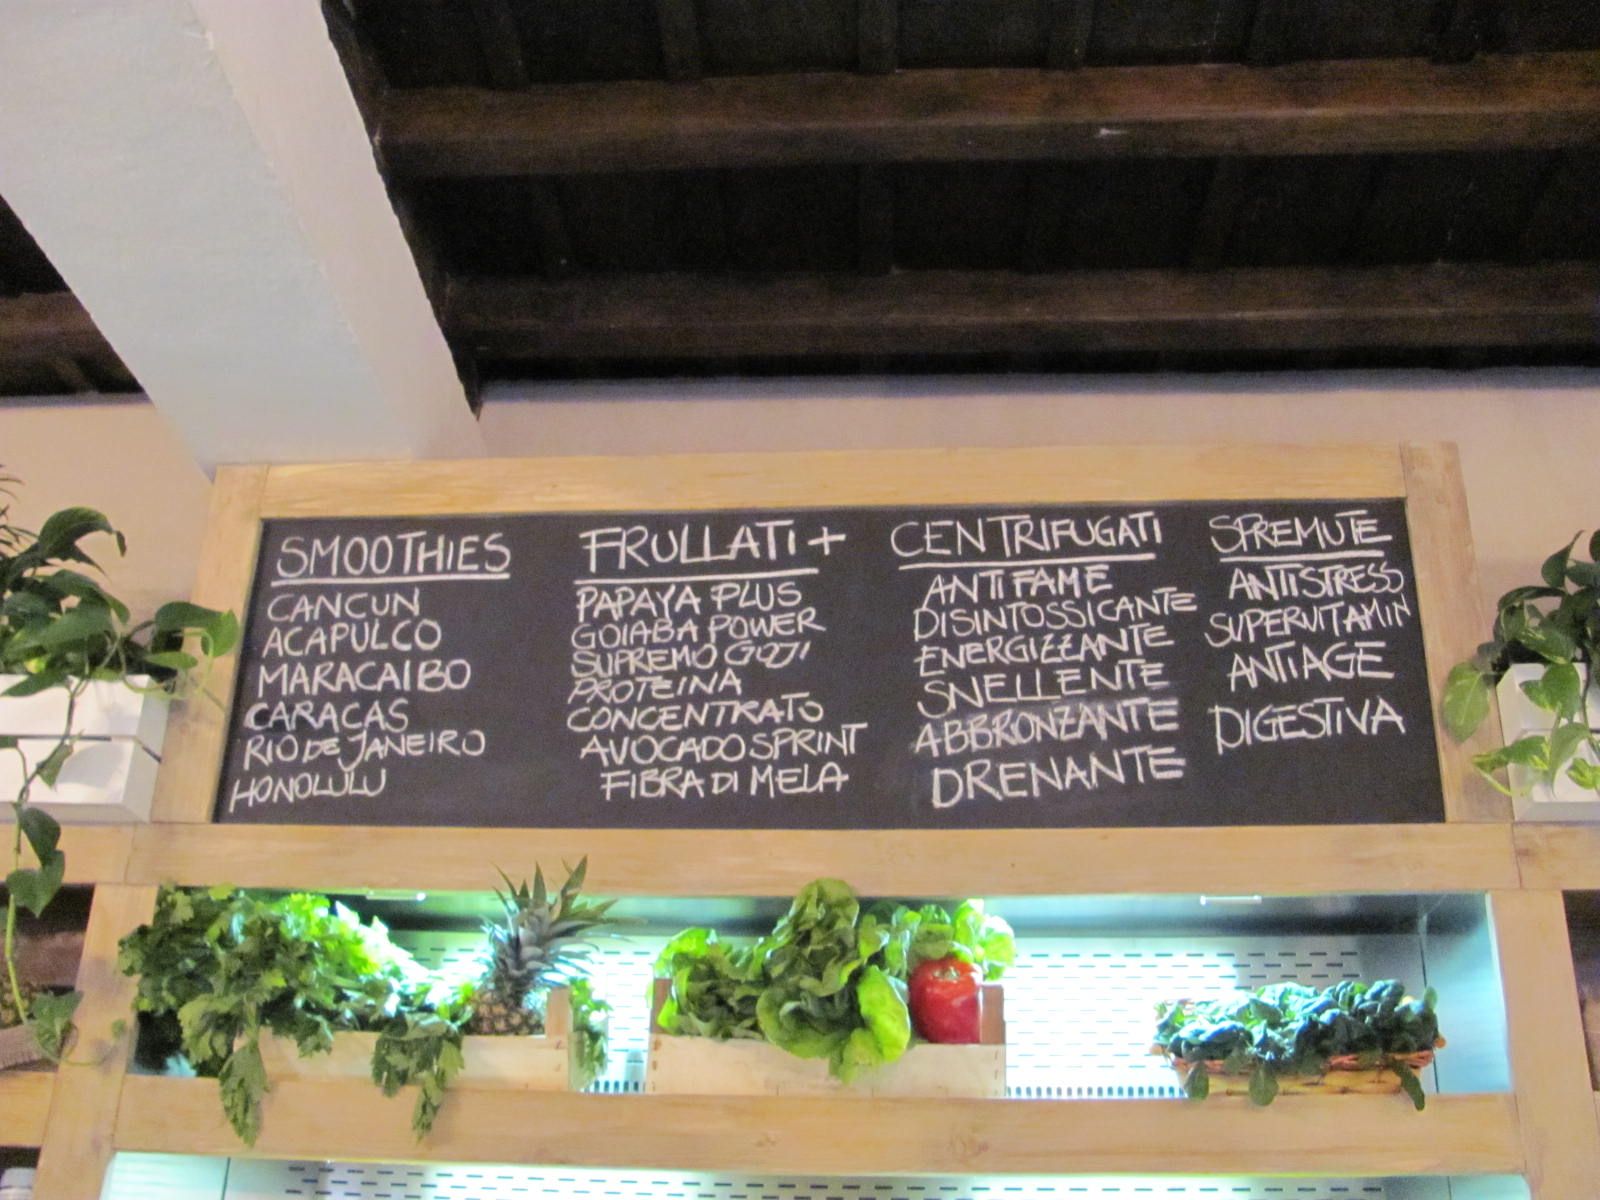 SMOOTHIES
CANCUN
ACAPULCO
MARACAIBO
CARACAS
RIO DE JANEIRO
HONOLULU
FRULLATI +
PAPAYA PLUS
GOIABA POWER
SUPREMO GOJI
PROTEINA
CONCENTRATO
AVOCADO SPRINT
FIBRA DI MELA
CENTRIFUGATI
ANTIFAME
DISINTOSSICANTE
ENERGIZZANTE
SNELLENTE
ABBRONZANTE
DRENANTE
SPREMUTE
ANTISTRESS
SUPERVITAMIN
ANTIAGE
DIGESTIVA